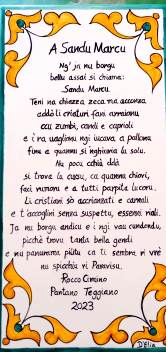 A Sandu Marcu
Ng'jè nu borgu
bellu assai si chiama:
Sandu Marcu
Teni na chiezza, zeca ma accònza
addò li criaturi fani arrajani
ccu zumbi, candi e caprioli
e i ra uagliuni ngi iucava a pallona
fine a quannu si nghiuria lu sulu.
Nu pocu cchiù ddà
si trova la casu, ca quannu chiovi,
faci rumoru e a tutti parpita lu coru.
Li cristiani sò accrianzati e cannali
e t'accoglini senza suspettu, essenni riali.
Ja nu borgu andicu e i ngi vau cundendu,
picchè trovu tanta bella gendi
e nu panurama piùtu ca ti sembra ri viré
nu spicchiu ri Paravisu.
Rocco Cimino
Pantano Teggiano
2023
D'Elia